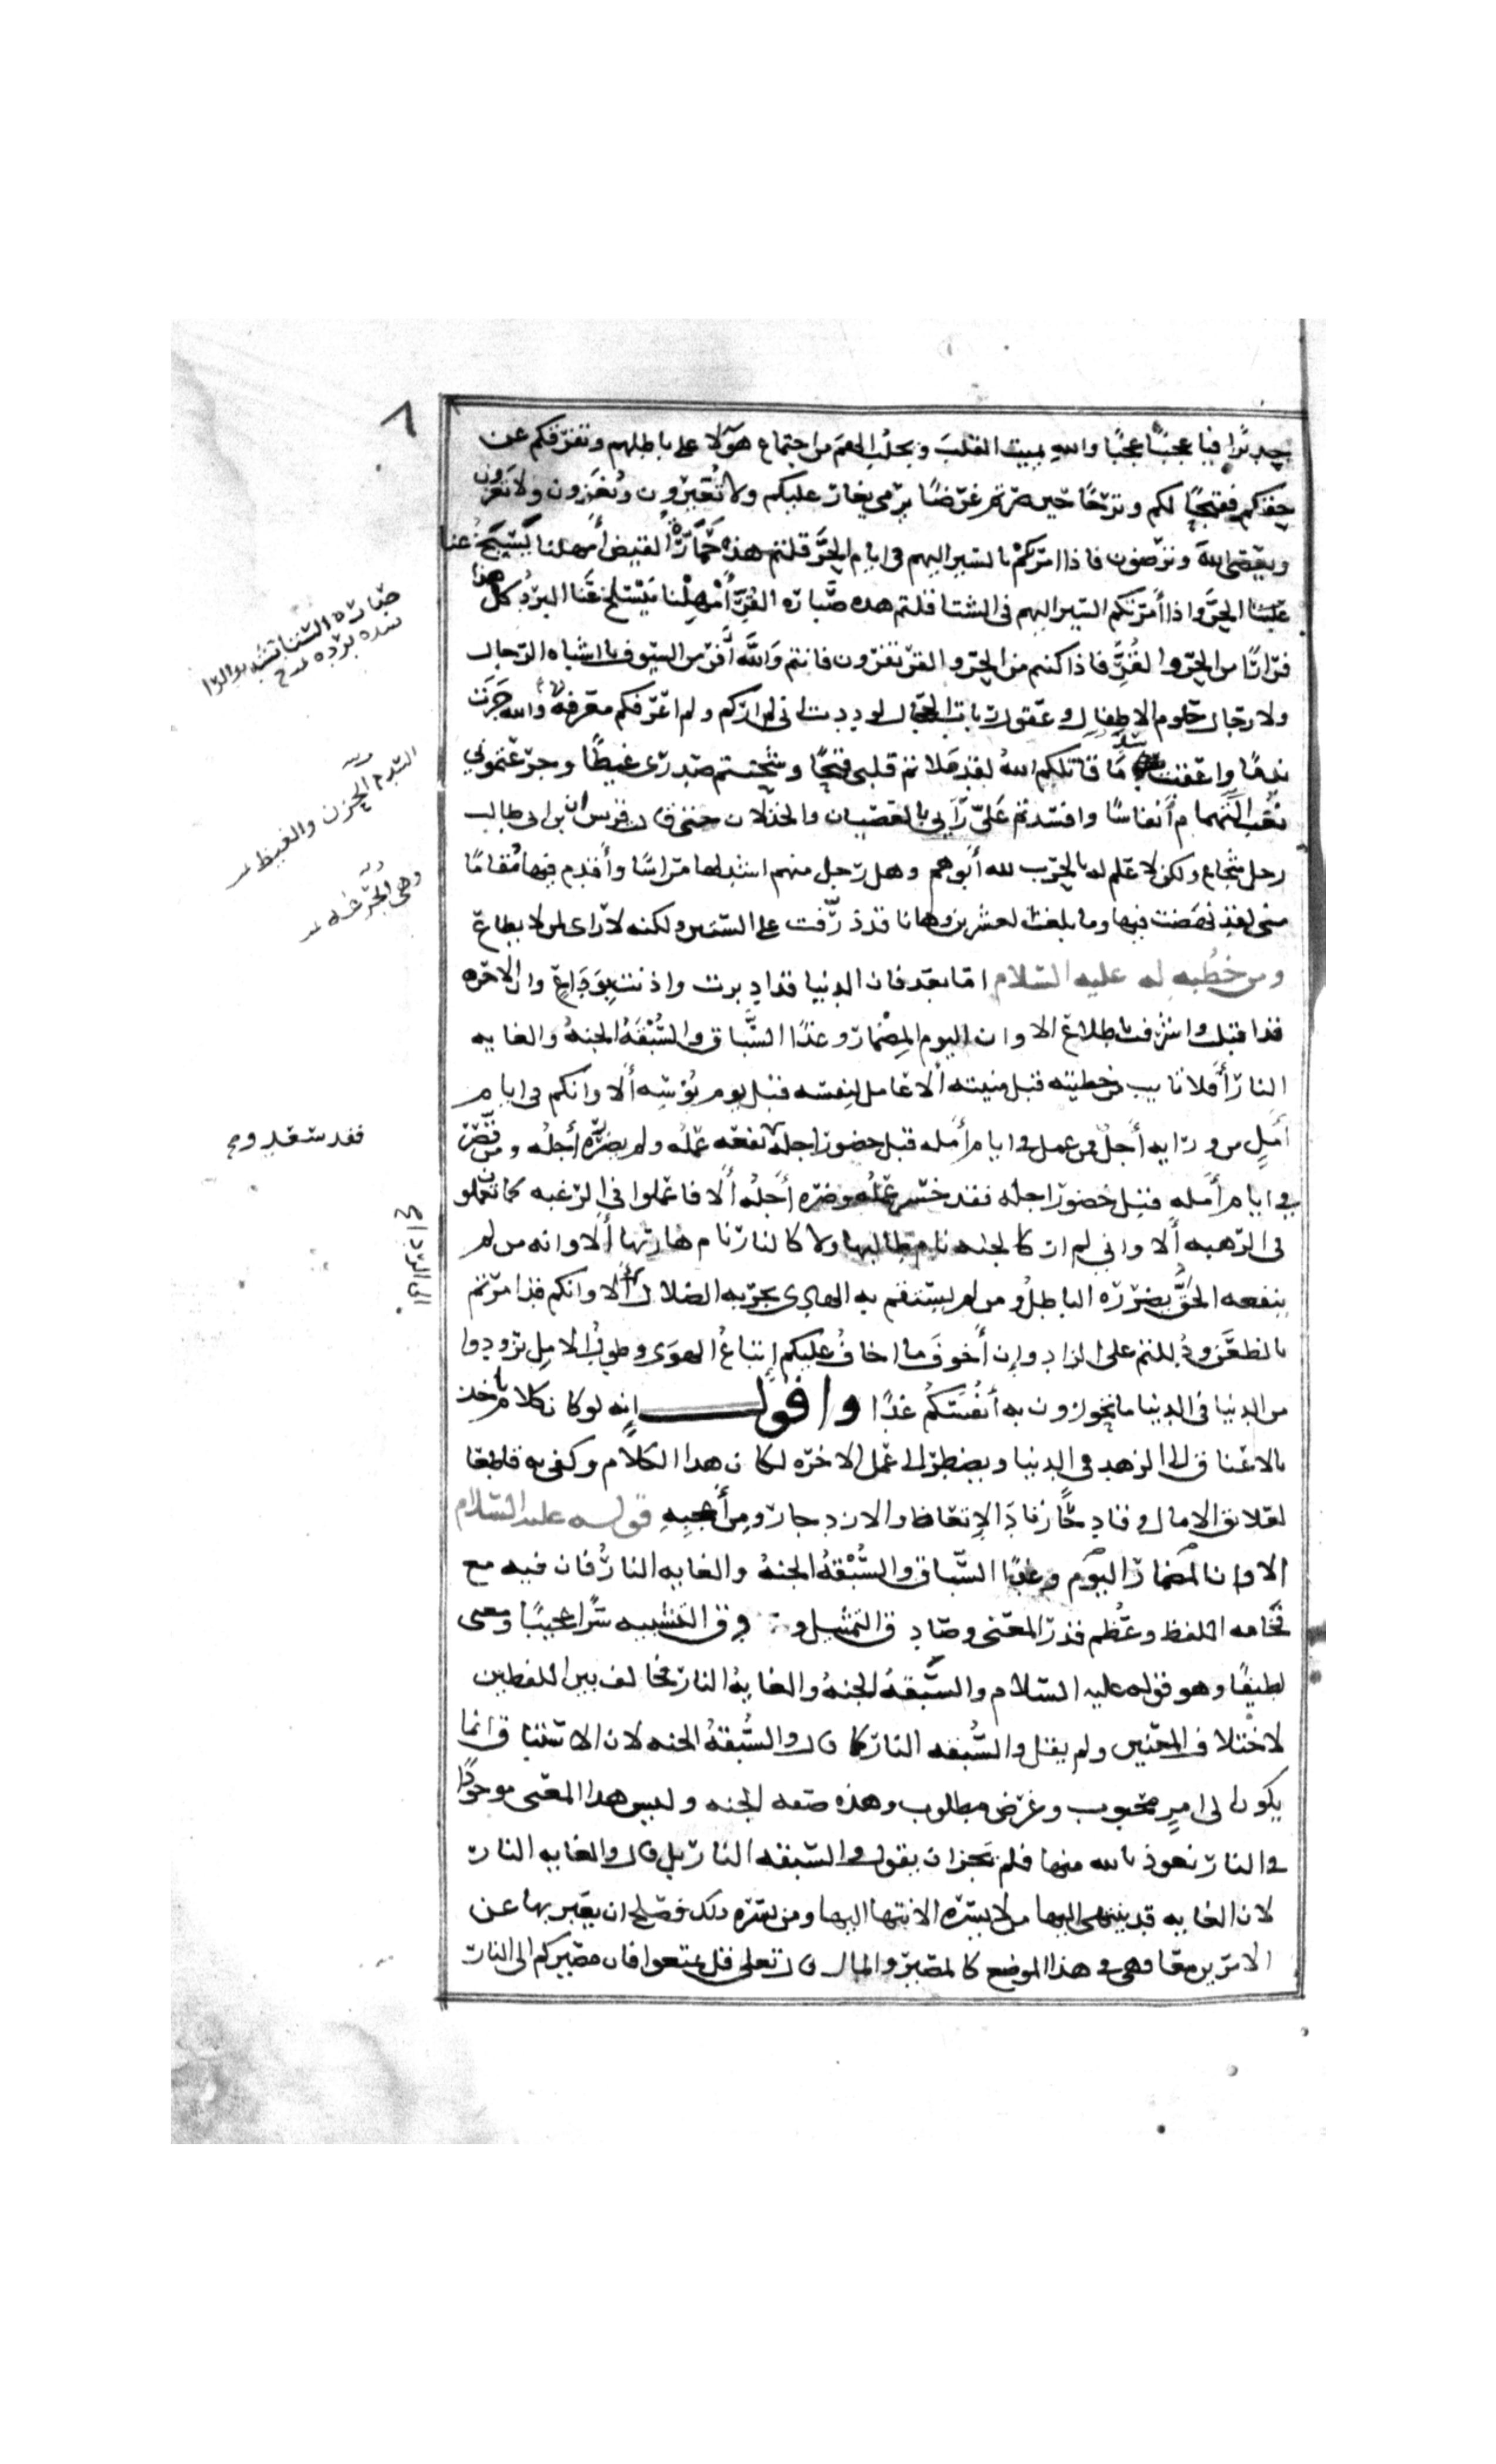 ٨
جديرًا فيا عجبًا عجبًا والله يميت القلب ويجلب الهم من اجتماع هولا على باطلهم وتفرقكم عن
حقكم فقبحًا لكم وترحًا حين صرتم غرضًا يرمى يغار عليكم ولا تغيرون وتغزون ولا تغزون
ويعصى الله وترضون فاذا امرتكم بالسير اليهم في ايام الحر قلتم هذه حمارة القيض أمهلنا يسبخ عنا
الحر واذا أمرتكم السير اليهم في الشتا قلتم هذه صبارة القر أمهلنا ينسلخ عنا البرد كل هذا
فرارًا من الحر والقر فاذا كنتم من الحر والقر تفرون فانتم والله أفر من السيوف يا اشباه الرجال
ولا رجال حلوم الاطفال وعقول ربات الحجال لوددت اني لم اركم ولم اعرفكم معرفة والله جرت
ندمًا واعقبت سدما قاتلكم الله لقد ملاتم قلبي قيحًا وشحنتم صدري غيظًا وجرعتموني
نغب التهمام أنفاسًا وافسدتم علي رأيي بالعصيان والخذلان حتى قالت قريش ان ابن ابي طالب
رجل شجاع ولكن لا علم له بالحرب لله أبوهم وهل رجل منهم اشد لها مراسًا وأقدم فيها مقامًا
مني لقد نهضت فيها وما بلغت العشرين وهانا قد ذرفت على الستين ولكنه لا راي لمن لا يطاع
ومن خطبه له عليه السلام اما بعد فان الدنيا قد ادبرت واذنت بوداع وان الاخره
قد اقبلت واشرفت باطلاع الا وان اليوم المضمار وغدًا السباق والسبقة الجنة والغايه
النار أفلا تايب من خطيته قبل منيته ألا عامل لنفسه قبل يوم بؤسه ألا وانكم في ايام
أمل من ورايه أجل فمن عمل في ايام أمله قبل حضور اجله نفعه عمله ولم يضره أجله ومن قصر
في ايام أمله قبل حضور اجله فقد خسر عمله وضره أجله ألا فاعملوا في الرغبه كما تعملون
في الرهبه ألا واني لم ار كالجنه نام طالبها ولا كالنار نام هاربها ألا وانه من لم
ينفعه الحق يضرره الباطل ومن لم يستقم به الهدى يجر به الضلال ألا وانكم قد امرتم
بالظعن ودللتم على الزاد وإن أخوف ما اخاف عليكم إتباع الهوى وطول الامل تزودوا
من الدنيا في الدنيا ما تحوزون به أنفسكم غدًا واقول إنه لو كان كلام ياخذ
بالاعناق الى الزهد في الدنيا ويضطر الى عمل الاخره لكان هذا الكلام وكفى به قاطعًا
لعلايق الامال وقادحًا زناد الإتعاظ والازدجار ومن أعجبه قوله عليه السلام
الا وان المضمار اليوم وغدًا السباق والسبقة الجنة والغايه النار فان فيه مع
فخامه اللفظ وعظم قدر المعنى وصادق التمثيل و وق التشبيه سرًا عجيبًا ومعنى
لطيفًا وهو قوله عليه السلام والسبقة الجنة والغاية النار فخالف بين اللفظين
لاختلاف المعنيين ولم يقل والسبقه النار كما قال والسبقة الجنه لان الاستباق انما
يكون الى امر محبوب وغرض مطلوب وهذه صفه الجنه وليس هذا المعنى موجودًا
في النار نعوذ بالله منها فلم يجز ان يقول والسبقه النار بل قال والغايه النار
لان الغايه قد ينتهى اليها من لا يسره الانتها اليها ومن يسره ذلك فصلح ان يعبر بها عن
الامرين معًا وهي في هذا الموضع كالمصير والمال قال تعلى قل تمتعوا فان مصيركم الى النار
صبارة الشتا بتشديد الرا
شده برده صح
السدم الحزن والغيظ
وهي الجرعه
فقد سعد وم